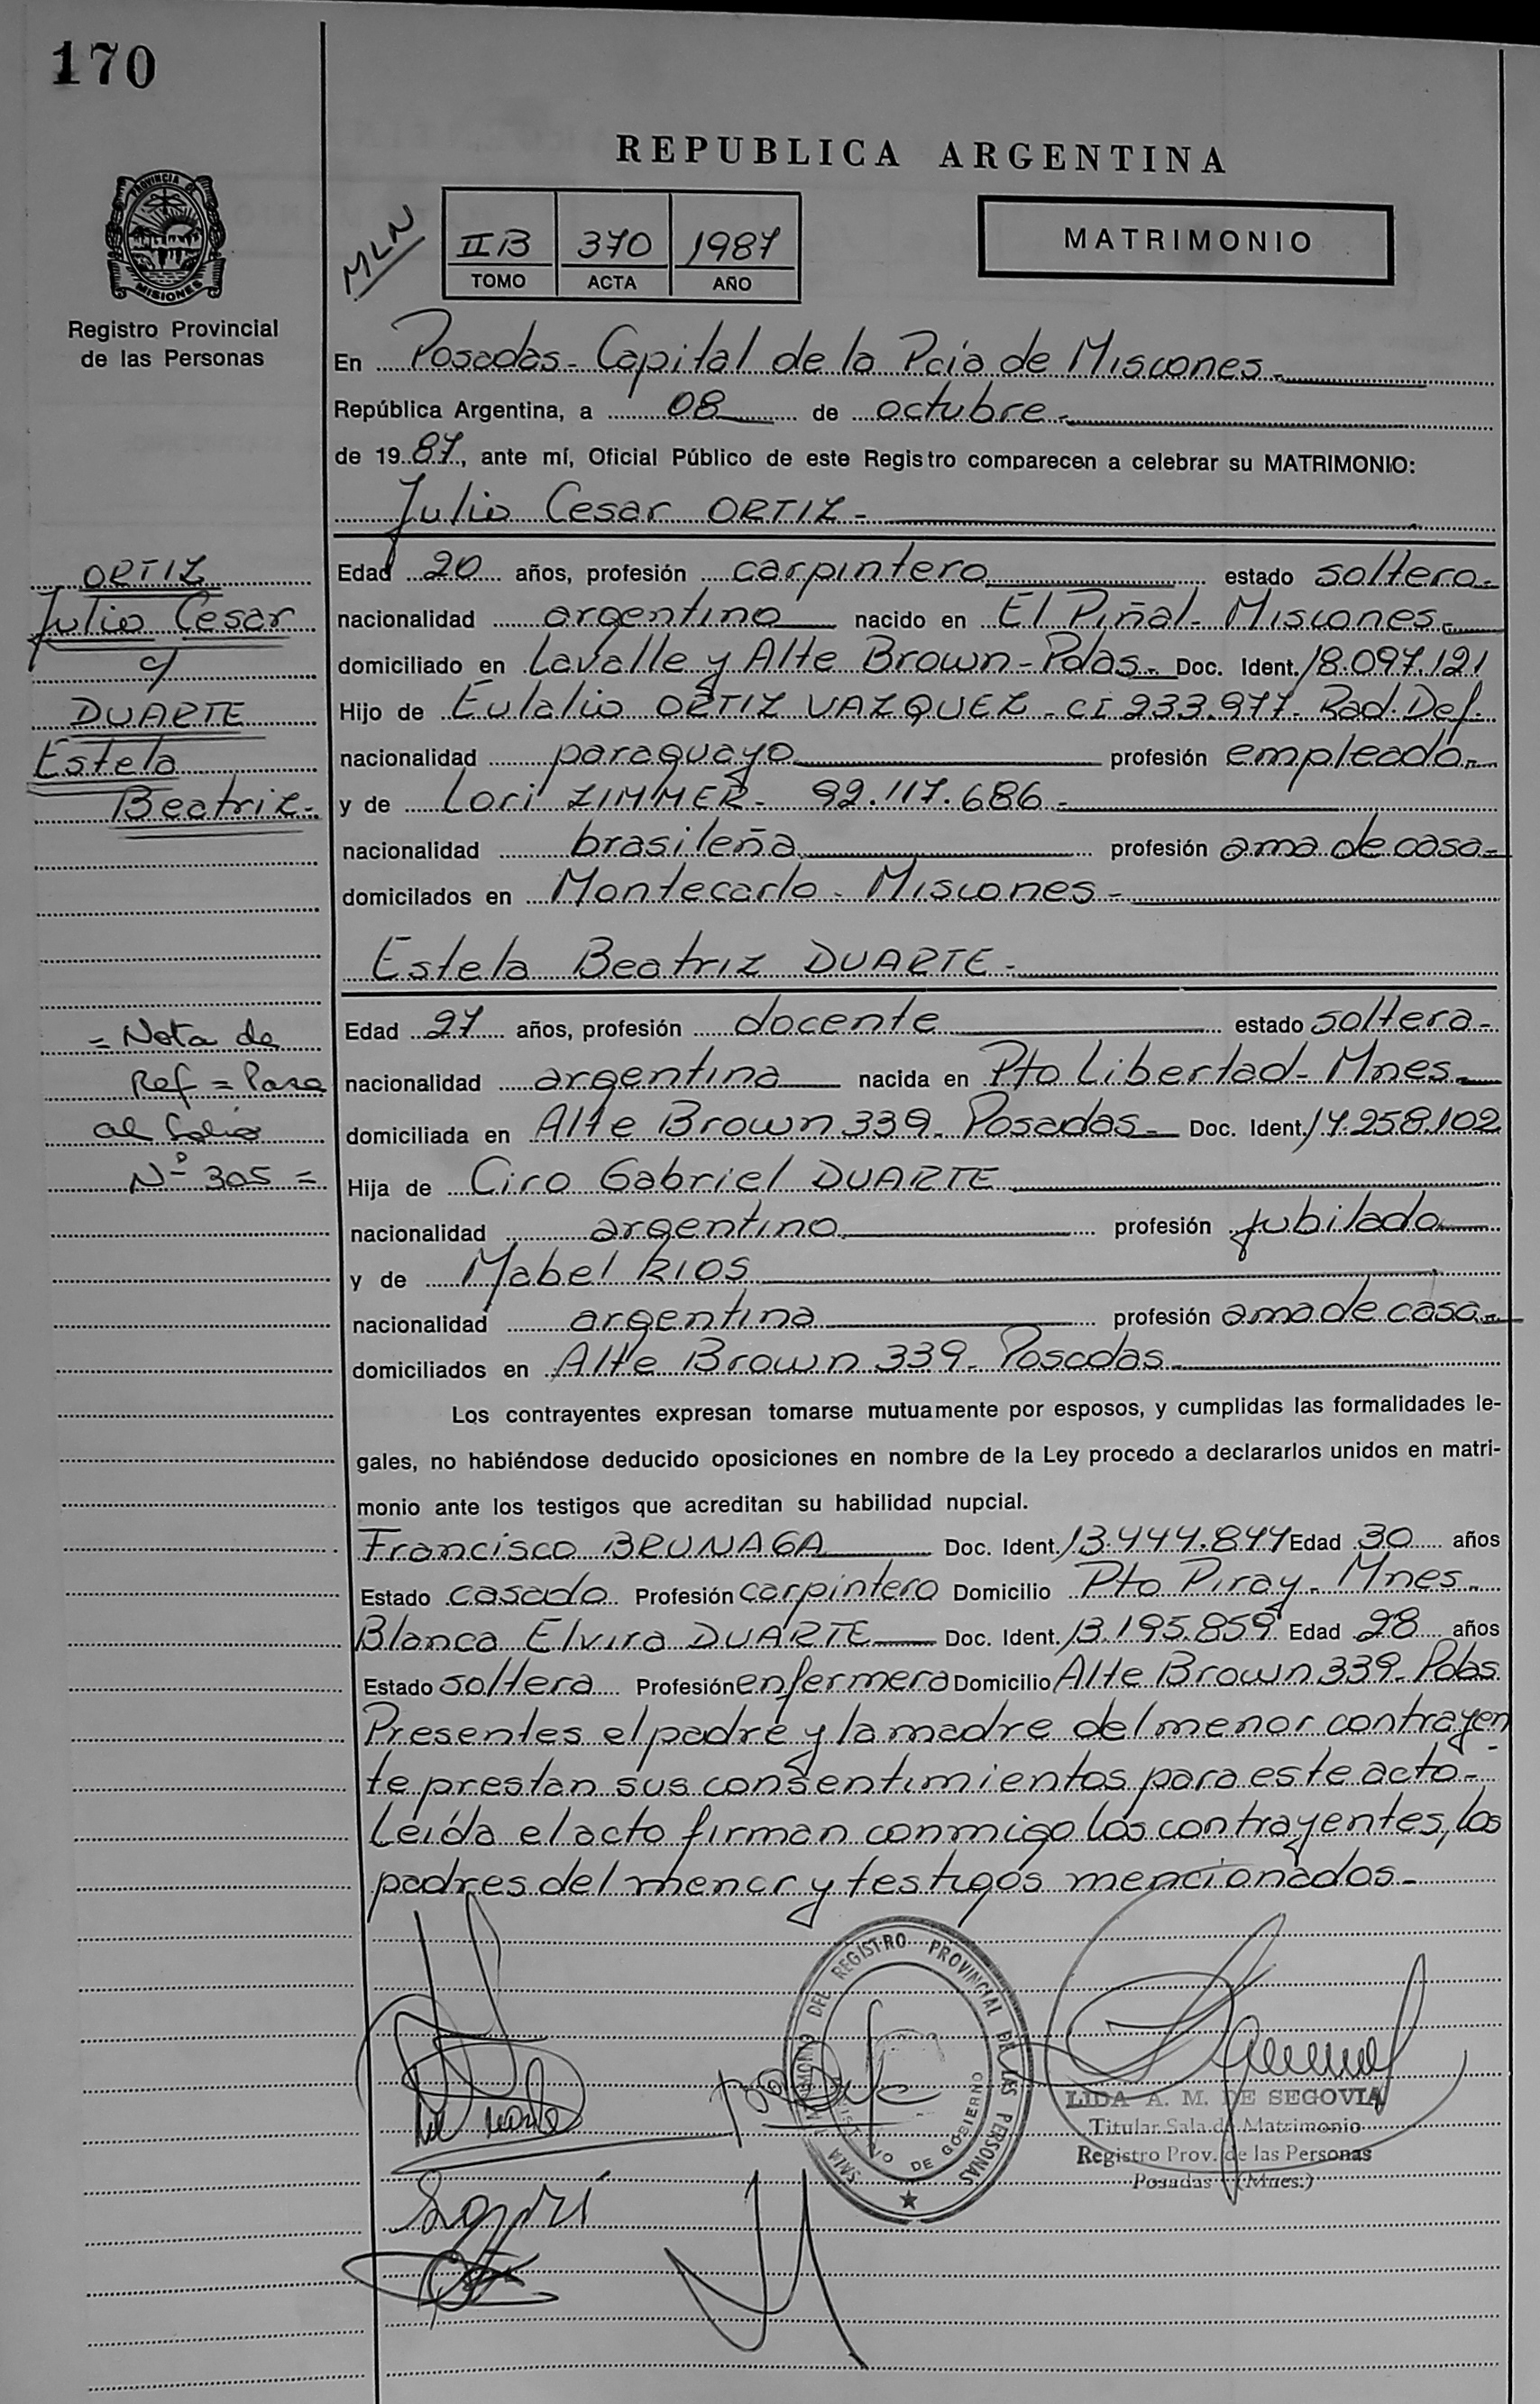 170
REPUBLICA ARGENTINA
PROVINCIA DE
MISIONES
Registro Provincial
de las Personas
MLN
II B 370 1987
TOMO ACTA AÑO
MATRIMONIO
En Posadas - Capital de la Pcia de Misiones -
República Argentina, a 08 de octubre -
de 19 87, ante mí, Oficial Público de este Registro comparecen a celebrar su MATRIMONIO:
Julio Cesar ORTIZ -
ORTIZ
Julio Cesar
c/
DUARTE
Estela
Beatriz -
Edad 20 años, profesión carpintero estado soltero -
nacionalidad argentino nacido en El Piñal - Misiones -
domiciliado en Lavalle y Alte Brown - Pdas - Doc. Ident. 18.097.121
Hijo de Eulalio ORTIZ VAZQUEZ - CI 233.977 - Rad. Def.
nacionalidad paraguayo profesión empleado -
y de Lori ZIMMER - 92.117.686 -
nacionalidad brasileña profesión ama de casa -
domicilados en Montecarlo - Misiones -
Estela Beatriz DUARTE -
= Nota de
Ref = Pasa
al folio
Nº 305 =
Edad 27 años, profesión docente estado soltera -
nacionalidad argentina nacida en Pto Libertad - Mnes -
domiciliada en Alte Brown 339 - Posadas - Doc. Ident. 14.258.102
Hija de Ciro Gabriel DUARTE
nacionalidad argentino profesión jubilado
y de Mabel RIOS
nacionalidad argentina profesión ama de casa -
domiciliados en Alte Brown 339 - Posadas -
Los contrayentes expresan tomarse mutuamente por esposos, y cumplidas las formalidades le-
gales, no habiéndose deducido oposiciones en nombre de la Ley procedo a declararlos unidos en matri-
monio ante los testigos que acreditan su habilidad nupcial.
Francisco BRUNAGA Doc. Ident. 13.444.844 Edad 30 años
Estado casado Profesión carpintero Domicilio Pto Piray - Mnes -
Blanca Elvira DUARTE Doc. Ident. 13.195.859 Edad 28 años
Estado soltera Profesión enfermera Domicilio Alte Brown 339 - Pdas.
Presentes el padre y la madre del menor contrayen
te prestan sus consentimientos para este acto -
Leída el acto firman conmigo los contrayentes, los
padres del menor y testigos mencionados -
DEL REGISTRO PROVINCIAL DE LAS PERSONAS
DE GOBIERNO
LIDA A. M. DE SEGOVIA
Titular Sala de Matrimonio
Registro Prov. de las Personas
Posadas (Mnes.)